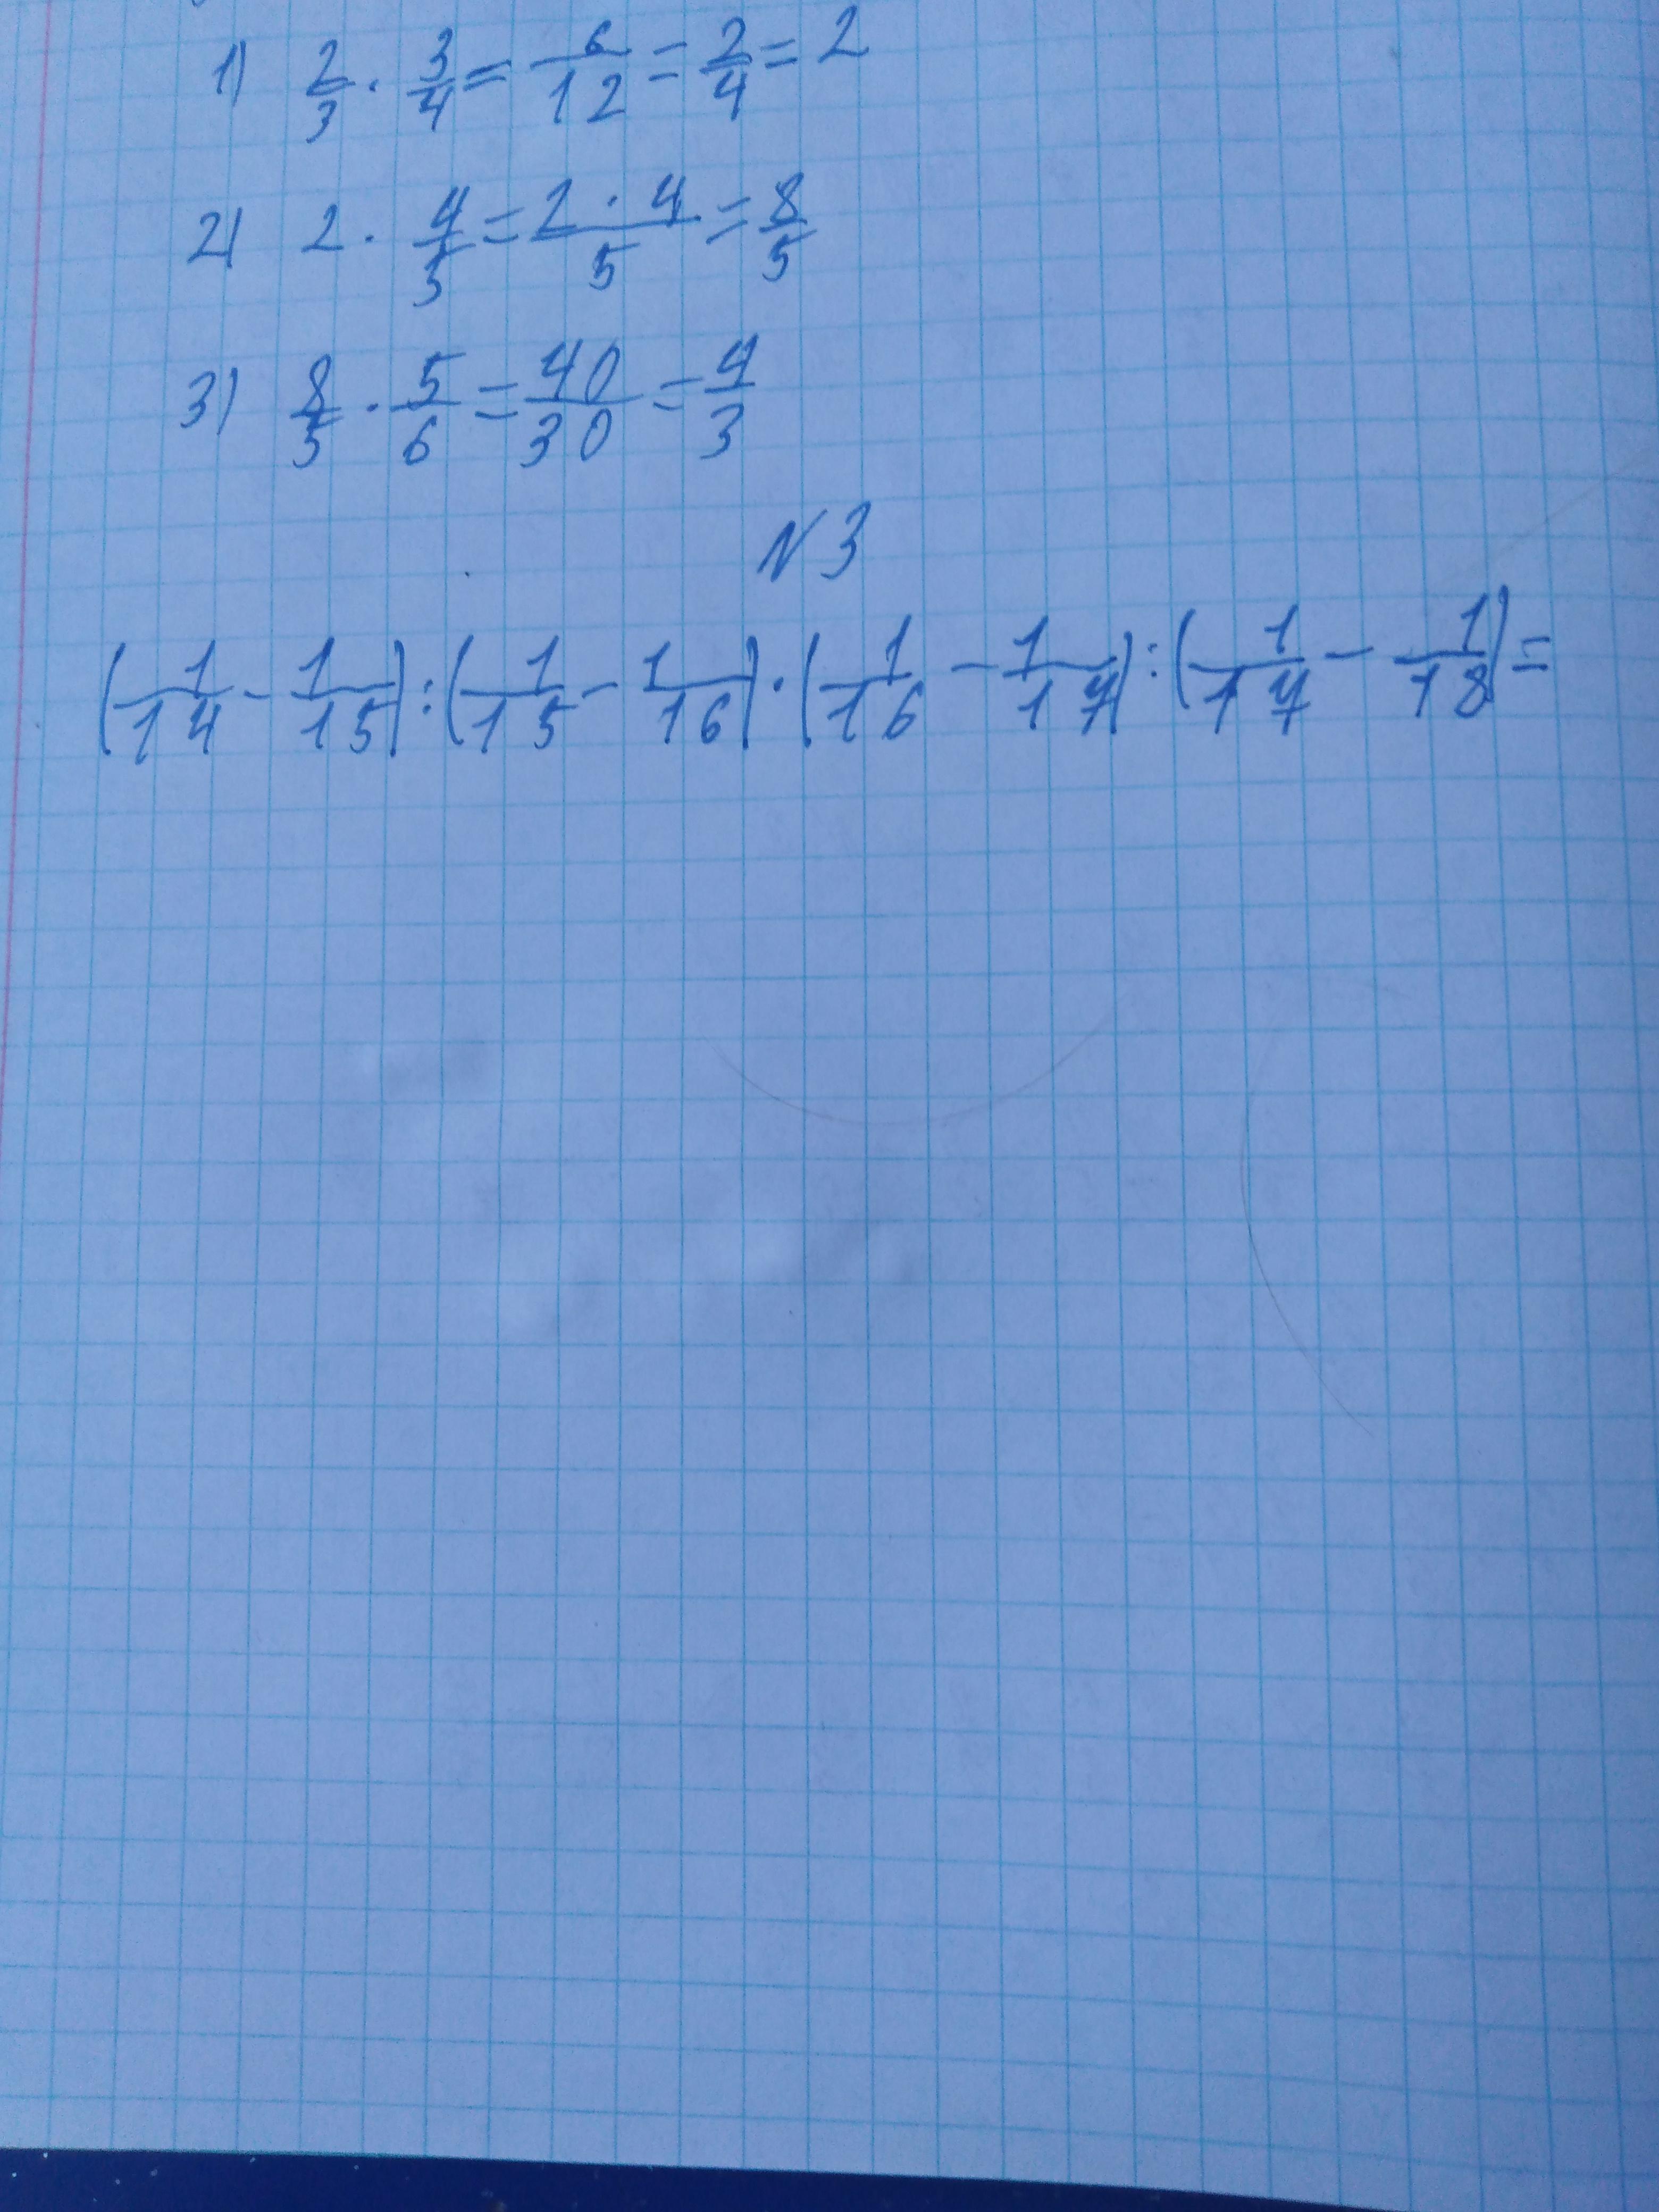 1) 2/3 · 3/4 = 6/12 = 2/4 = 2
2) 2 · 4/5 = 2 · 4/5 = 8/5
3) 8/5 · 5/6 = 40/30 = 4/3
N3
(1/14 - 1/15) : (1/15 - 1/16) · (1/16 - 1/17) : (1/17 - 1/18) =